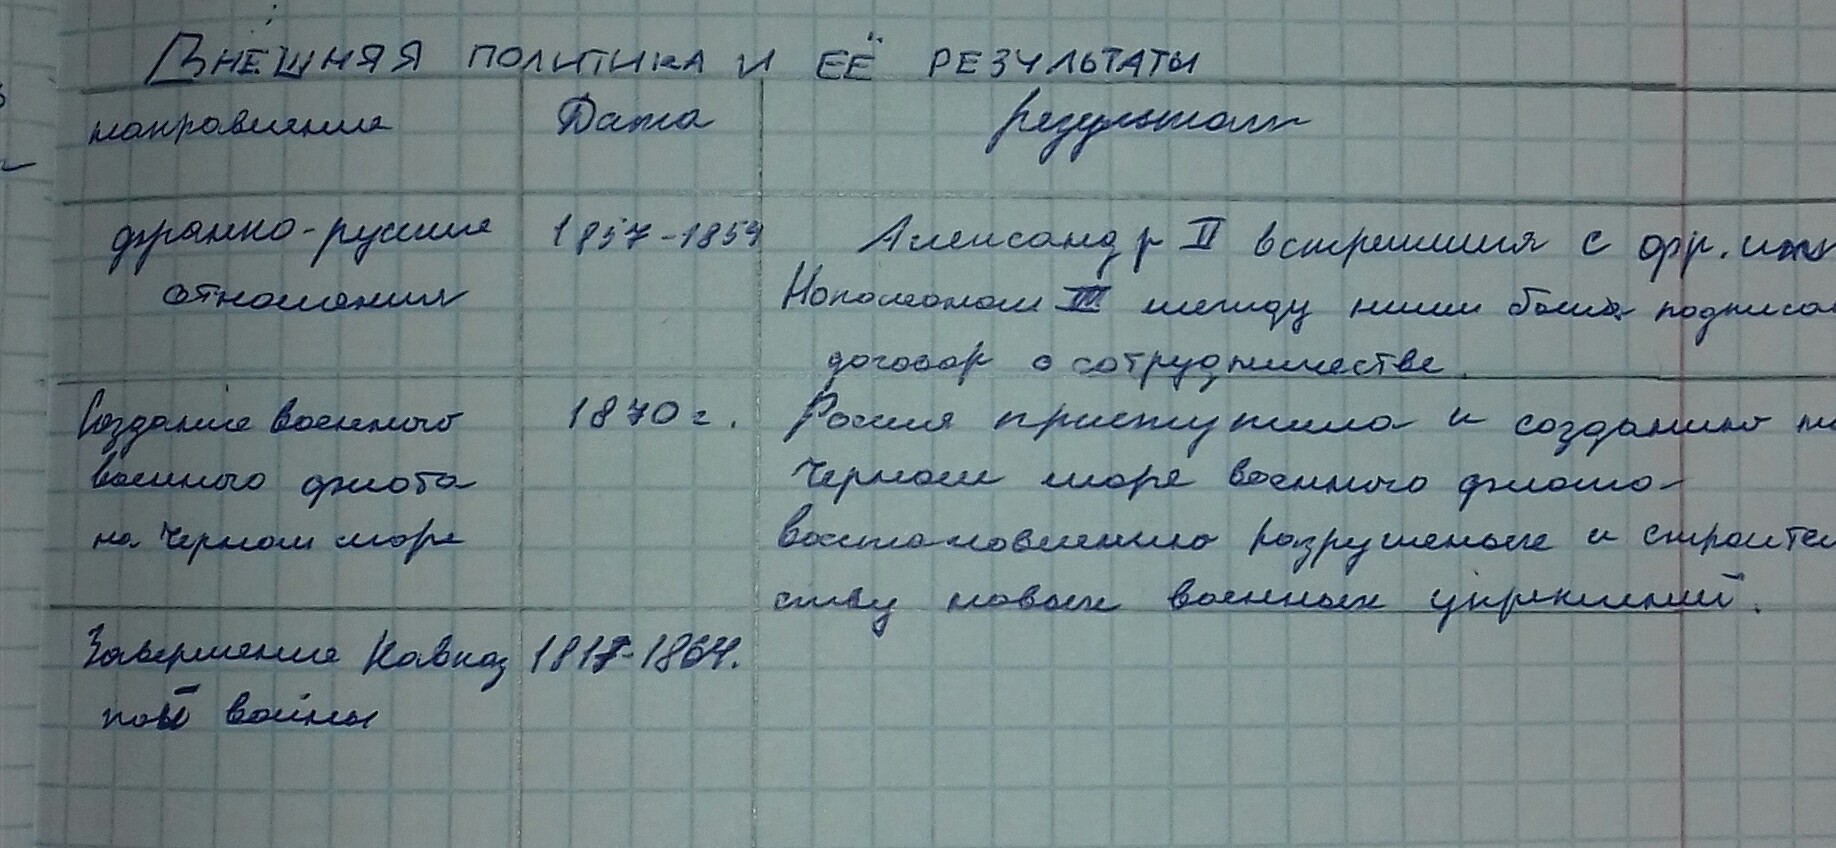 ВНЕШНЯЯ ПОЛИТИКА И ЕЁ РЕЗУЛЬТАТЫ
направление Дата результат
франко-русские 1857-1859 Александр II встретился с фр.
отношения Наполеоном III между ними была подписан
договор о сотрудничестве.
Создание военного 1870 г. Россия приступила к созданию
военного флота Черном море военного флота
на Черном море восстановлению разрушеных и строитель
ству новых военных укреплений.
Завершение Кавказ 1817-1864.
ной войны